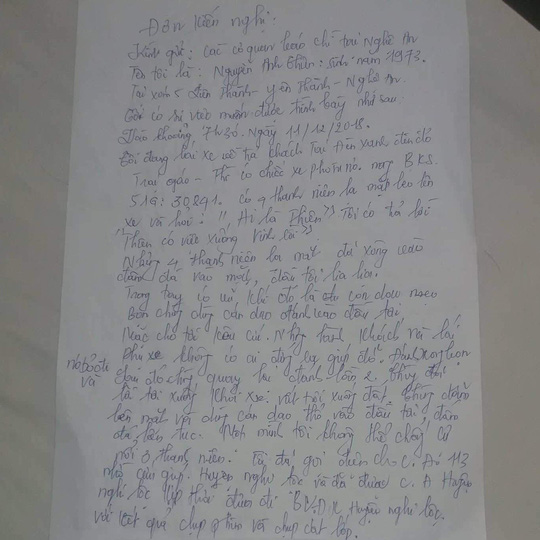 Đơn kiến nghị:
Kính gửi: Các cơ quan báo chí tại Nghệ An
Tên tôi là: Nguyễn Anh Thiên: sinh năm 1973.
Tại xóm 5 Liên Thành - Yên Thành - Nghệ An.
Tôi có sự việc muốn được trình bày như sau.
Vào khoảng 7h30. Ngày 11/12/2018.
Tôi đang lái xe về trả khách Tại Đèn xanh đèn đỏ
Thì có chiếc xe mang BKS.
51G: 30,241. Có 4 thanh niên lạ mặt leo lên
xe và hỏi: "Ai là Thiên" Tôi có trả lời
"Thiên có việc xuống
Những 4 thanh niên lạ mặt đó xông vào
đấm đá vào mặt, đầu tôi lia lịa.
Trong tay có vũ khí đó là con dao
Bọn chúng dùng cán dao đánh vào đầu tôi
Mặc cho tôi kêu cứu. Nhưng hành khách và lái
phụ xe không có ai đứng ra giúp đỡ. Đánh xong bọn
nó bỏ đi và
sau đó chúng quay lại đánh lần 2. chúng
lôi tôi xuống khỏi xe. vứt tôi xuống đất. chúng
lên mặt và dùng cán dao thọc vào đầu tôi, đấm
đá liên tục. Một mình tôi không thể chống cự
nổi 4 thanh niên. Tôi đã gọi điện cho C. An 113
nhờ cứu giúp. Huyện nghi lộc và đã được C. A Huyện
nghi lộc đưa đi BV.Đ.K Huyện nghi lộc.
với kết quả chụp phim và chụp cắt lớp.